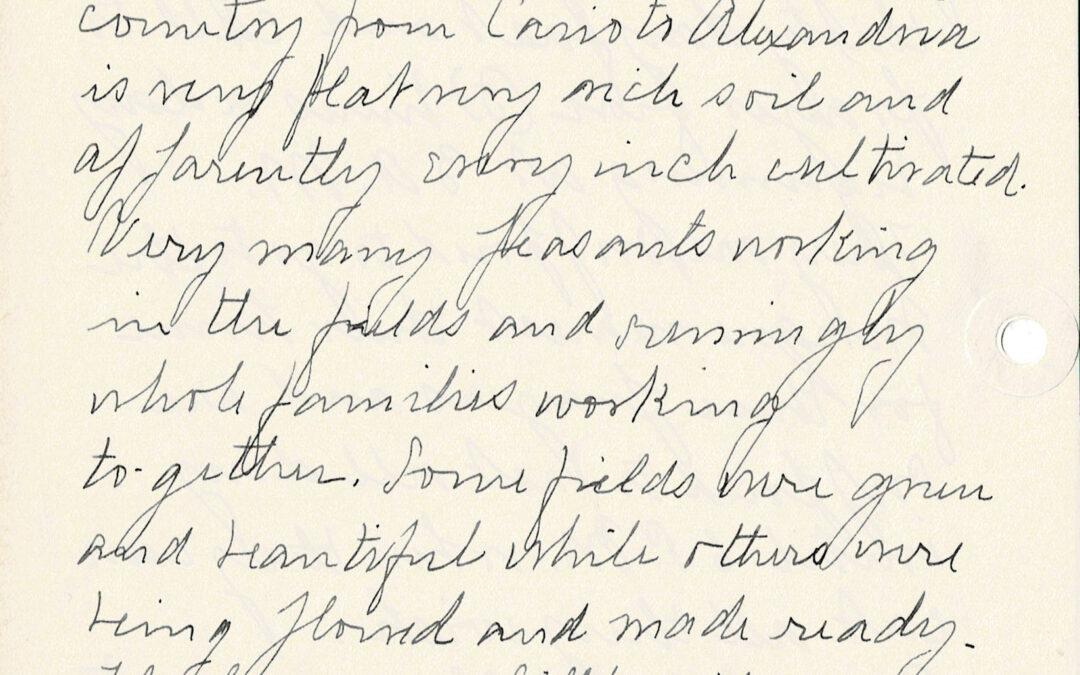 country from Cairo to Alexandria
is very flat very rich soil and
apparently every inch cultivated.
Very many peasants working
in the fields and seemingly
whole families working
to-gether. Some fields were green
and beautiful while others were
being plowed and made ready.